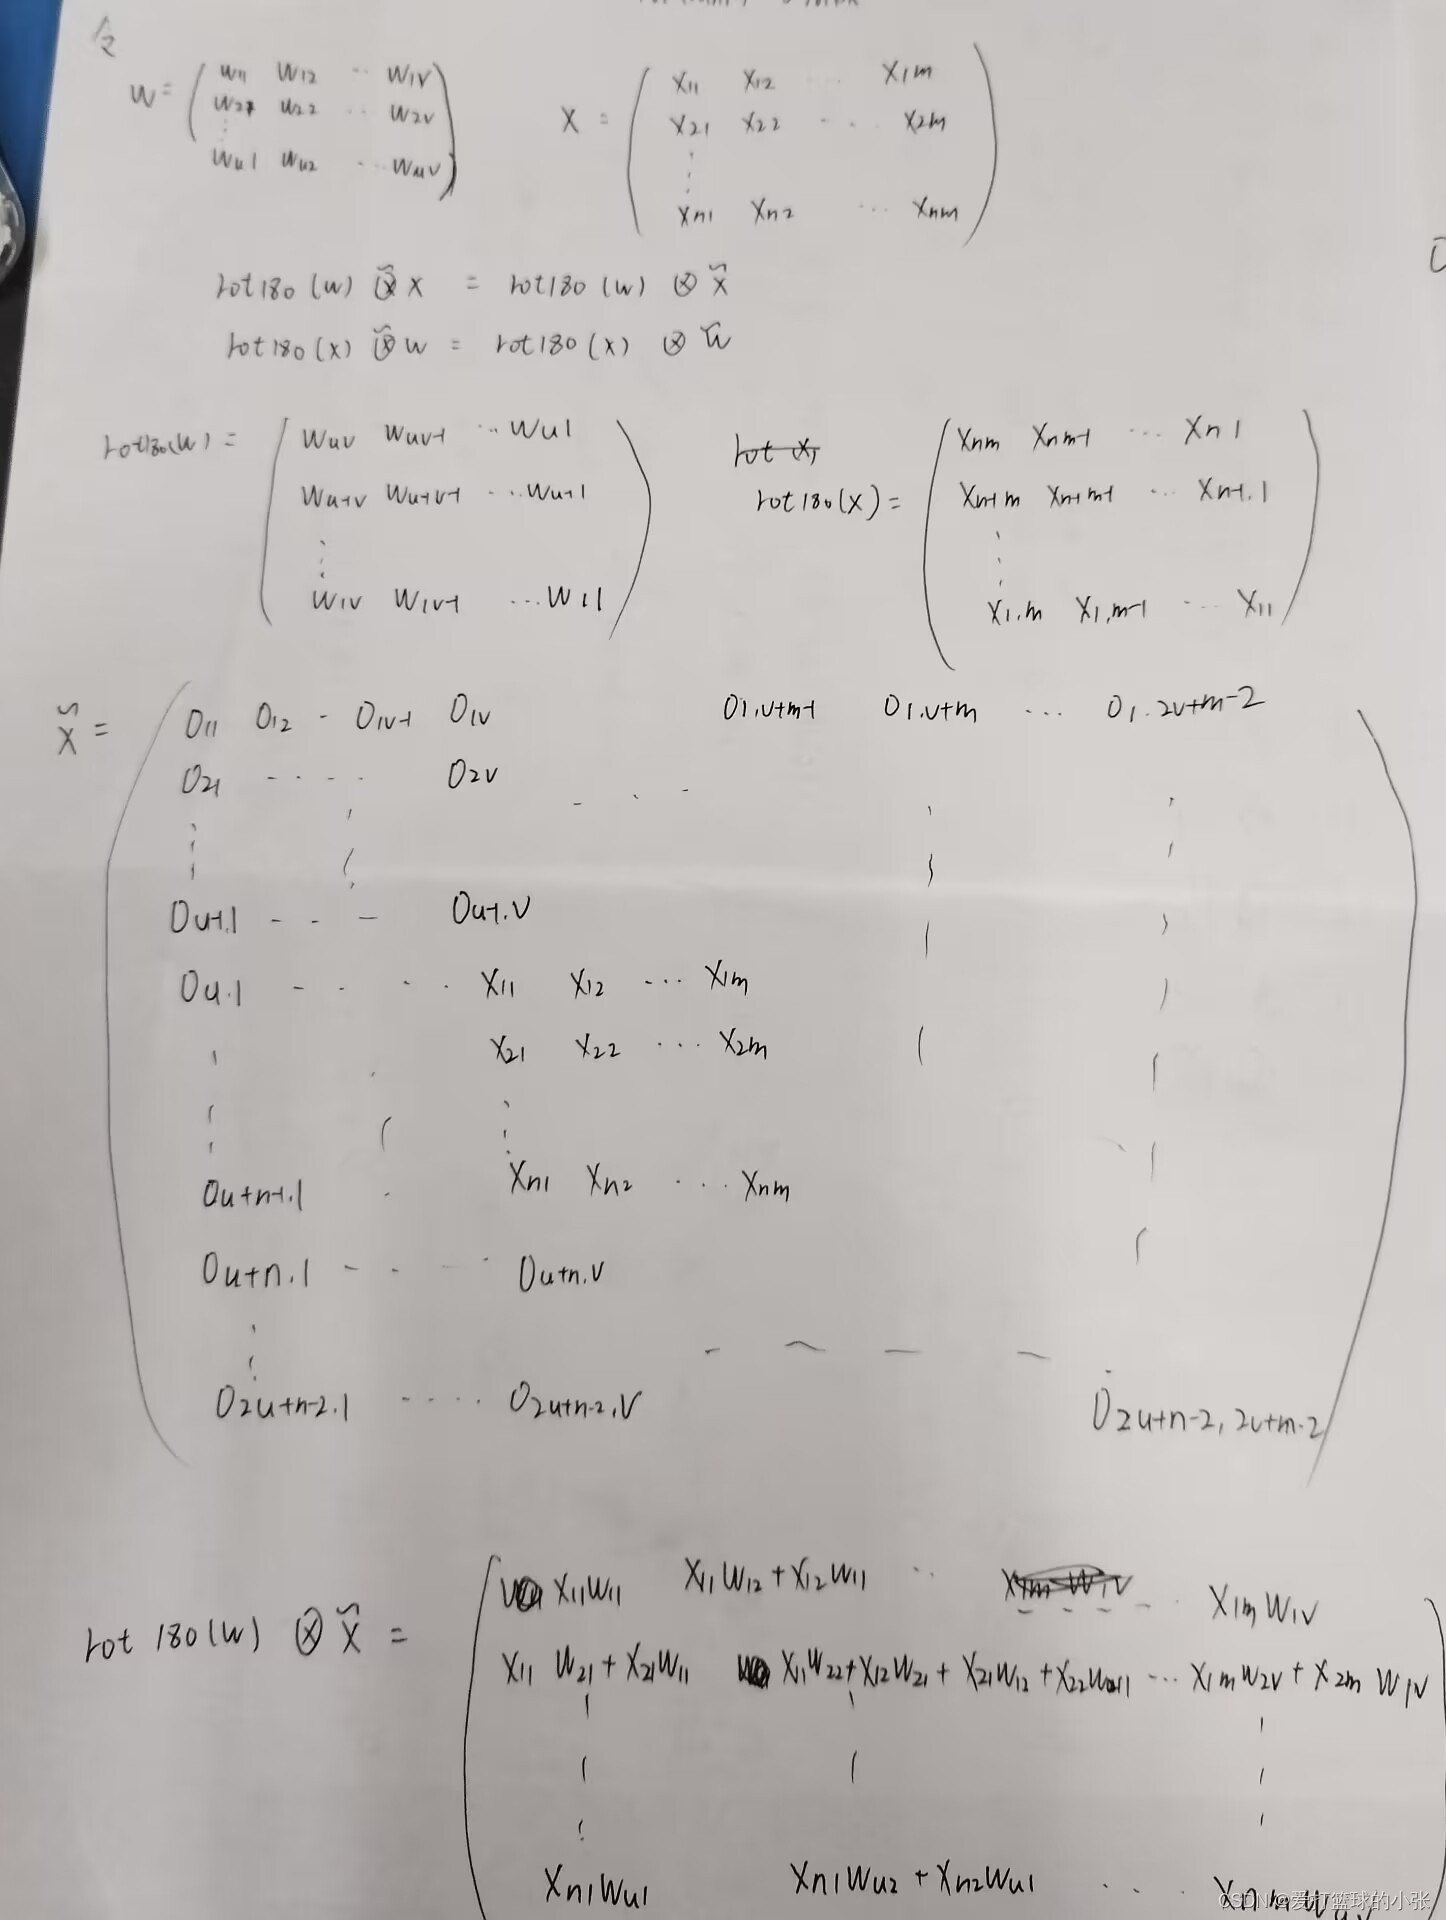 令
W = ( w11 w12 ·· w1v
w21 w22 ··· w2v
⋮
wu1 wu2 ··· wuv )
X = ( x11 x12 ··· x1m
x21 x22 ··· x2m
⋮
xn1 xn2 ··· xnm )
rot180 (w) ⊗̃ x = rot180 (w) ⊗ x̃
rot180 (x) ⊗̃ w = rot180 (x) ⊗ w̃
rot180(w) = ( wuv wuv-1 ··· wu1
wu-1v wu-1v-1 ··· wu-11
⋮
w1v w1v-1 ··· w11 )
rot180(x) = ( xnm xnm-1 ··· xn1
xn-1m xn-1m-1 ··· xn-1.1
⋮
x1.m x1,m-1 ··· x11 )
x̃ = ( 011 012 · 01v-1 01v 01.v+m-1 01.v+m ··· 01.2v+m-2
021 ···· 02v
⋮
0u-1.1 --- 0u-1.v
0u.1 ---- x11 x12 ··· x1m
x21 x22 ··· x2m
⋮
0u+n-1.1 · xn1 xn2 ··· xnm
0u+n.1 ---- 0u+n.v
⋮
02u+n-2.1 ····· 02u+n-2,v 02u+n-2, 2v+m-2 )
rot 180(w) ⊗ x̃ = ( x11w11 x11w12 + x12w11 ·· x1mw1v
x11 w21 + x21w11 x11w22 + x12w21 + x21w12 + x22w11 ··· x1mw2v + x2m w1v
⋮
xn1wu1 xn1wu2 + xn2wu1 ···· xnmwuv
CSDN @爱打篮球的小张